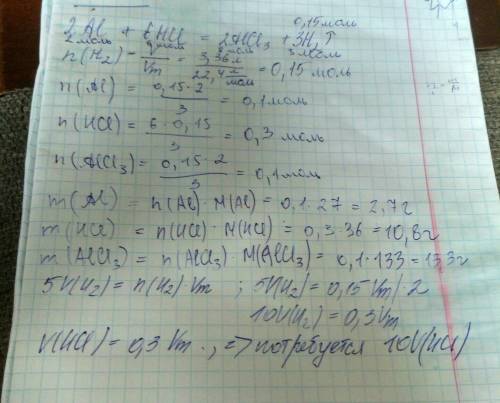 0,15 моль
2Al + 6HCl = 2AlCl₃ + 3H₂↑
2 моль 3 моль
n(H₂) = V/Vm = 3,36 л / 22,4 л/моль = 0,15 моль
n(Al) = 0,15·2 / 3 = 0,1 моль
n(HCl) = 6·0,15 / 3 = 0,3 моль
n(AlCl₃) = 0,15·2 / 3 = 0,1 моль
m(Al) = n(Al)·M(Al) = 0,1·27 = 2,7г
m(HCl) = n(HCl)·M(HCl) = 0,3·36 = 10,8г
m(AlCl₃) = n(AlCl₃)·M(AlCl₃) = 0,1·133 = 13,3г
5V(H₂) = n(H₂)·Vm ; 5V(H₂) = 0,15 Vm |·2
10V(H₂) = 0,3Vm
V(HCl) = 0,3 Vm., => потребуется 10V(HCl)